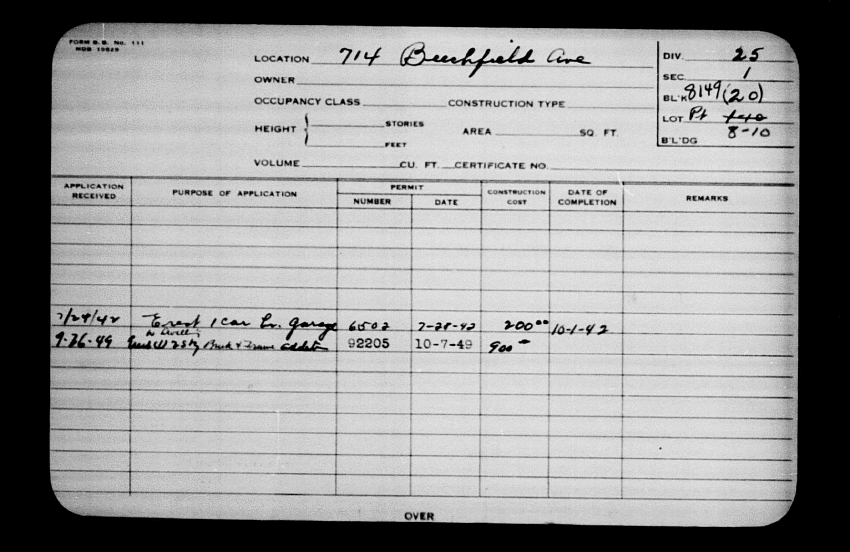 FORM B.B. No. 111
MDB 10629
LOCATION 714 Beechfield Ave
OWNER
OCCUPANCY CLASS CONSTRUCTION TYPE
HEIGHT { STORIES
FEET
AREA SQ. FT.
VOLUME CU. FT. CERTIFICATE NO.
DIV. 25
SEC. 1
BL'K 8149 (20)
LOT Pt
B'L'DG 8-10
APPLICATION RECEIVED PURPOSE OF APPLICATION PERMIT NUMBER DATE CONSTRUCTION COST DATE OF COMPLETION REMARKS
7/24/42 Erect 1 car Fr. Garage 6502 7-28-42 200 00 10-1-42
9-26-49 2 Sty & Frame addition 92205 10-7-49 900 -
OVER